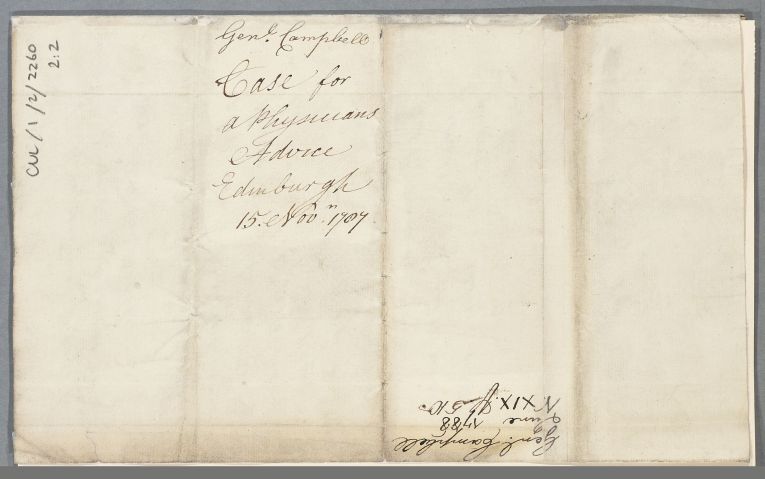 CUL/1/2/2260
2:2
Genl. Campbell
Case for
a Physicians
Advice
Edinburgh
15. Novr. 1787
Genl. Campbell
June 1788
N. XIX. p. 510